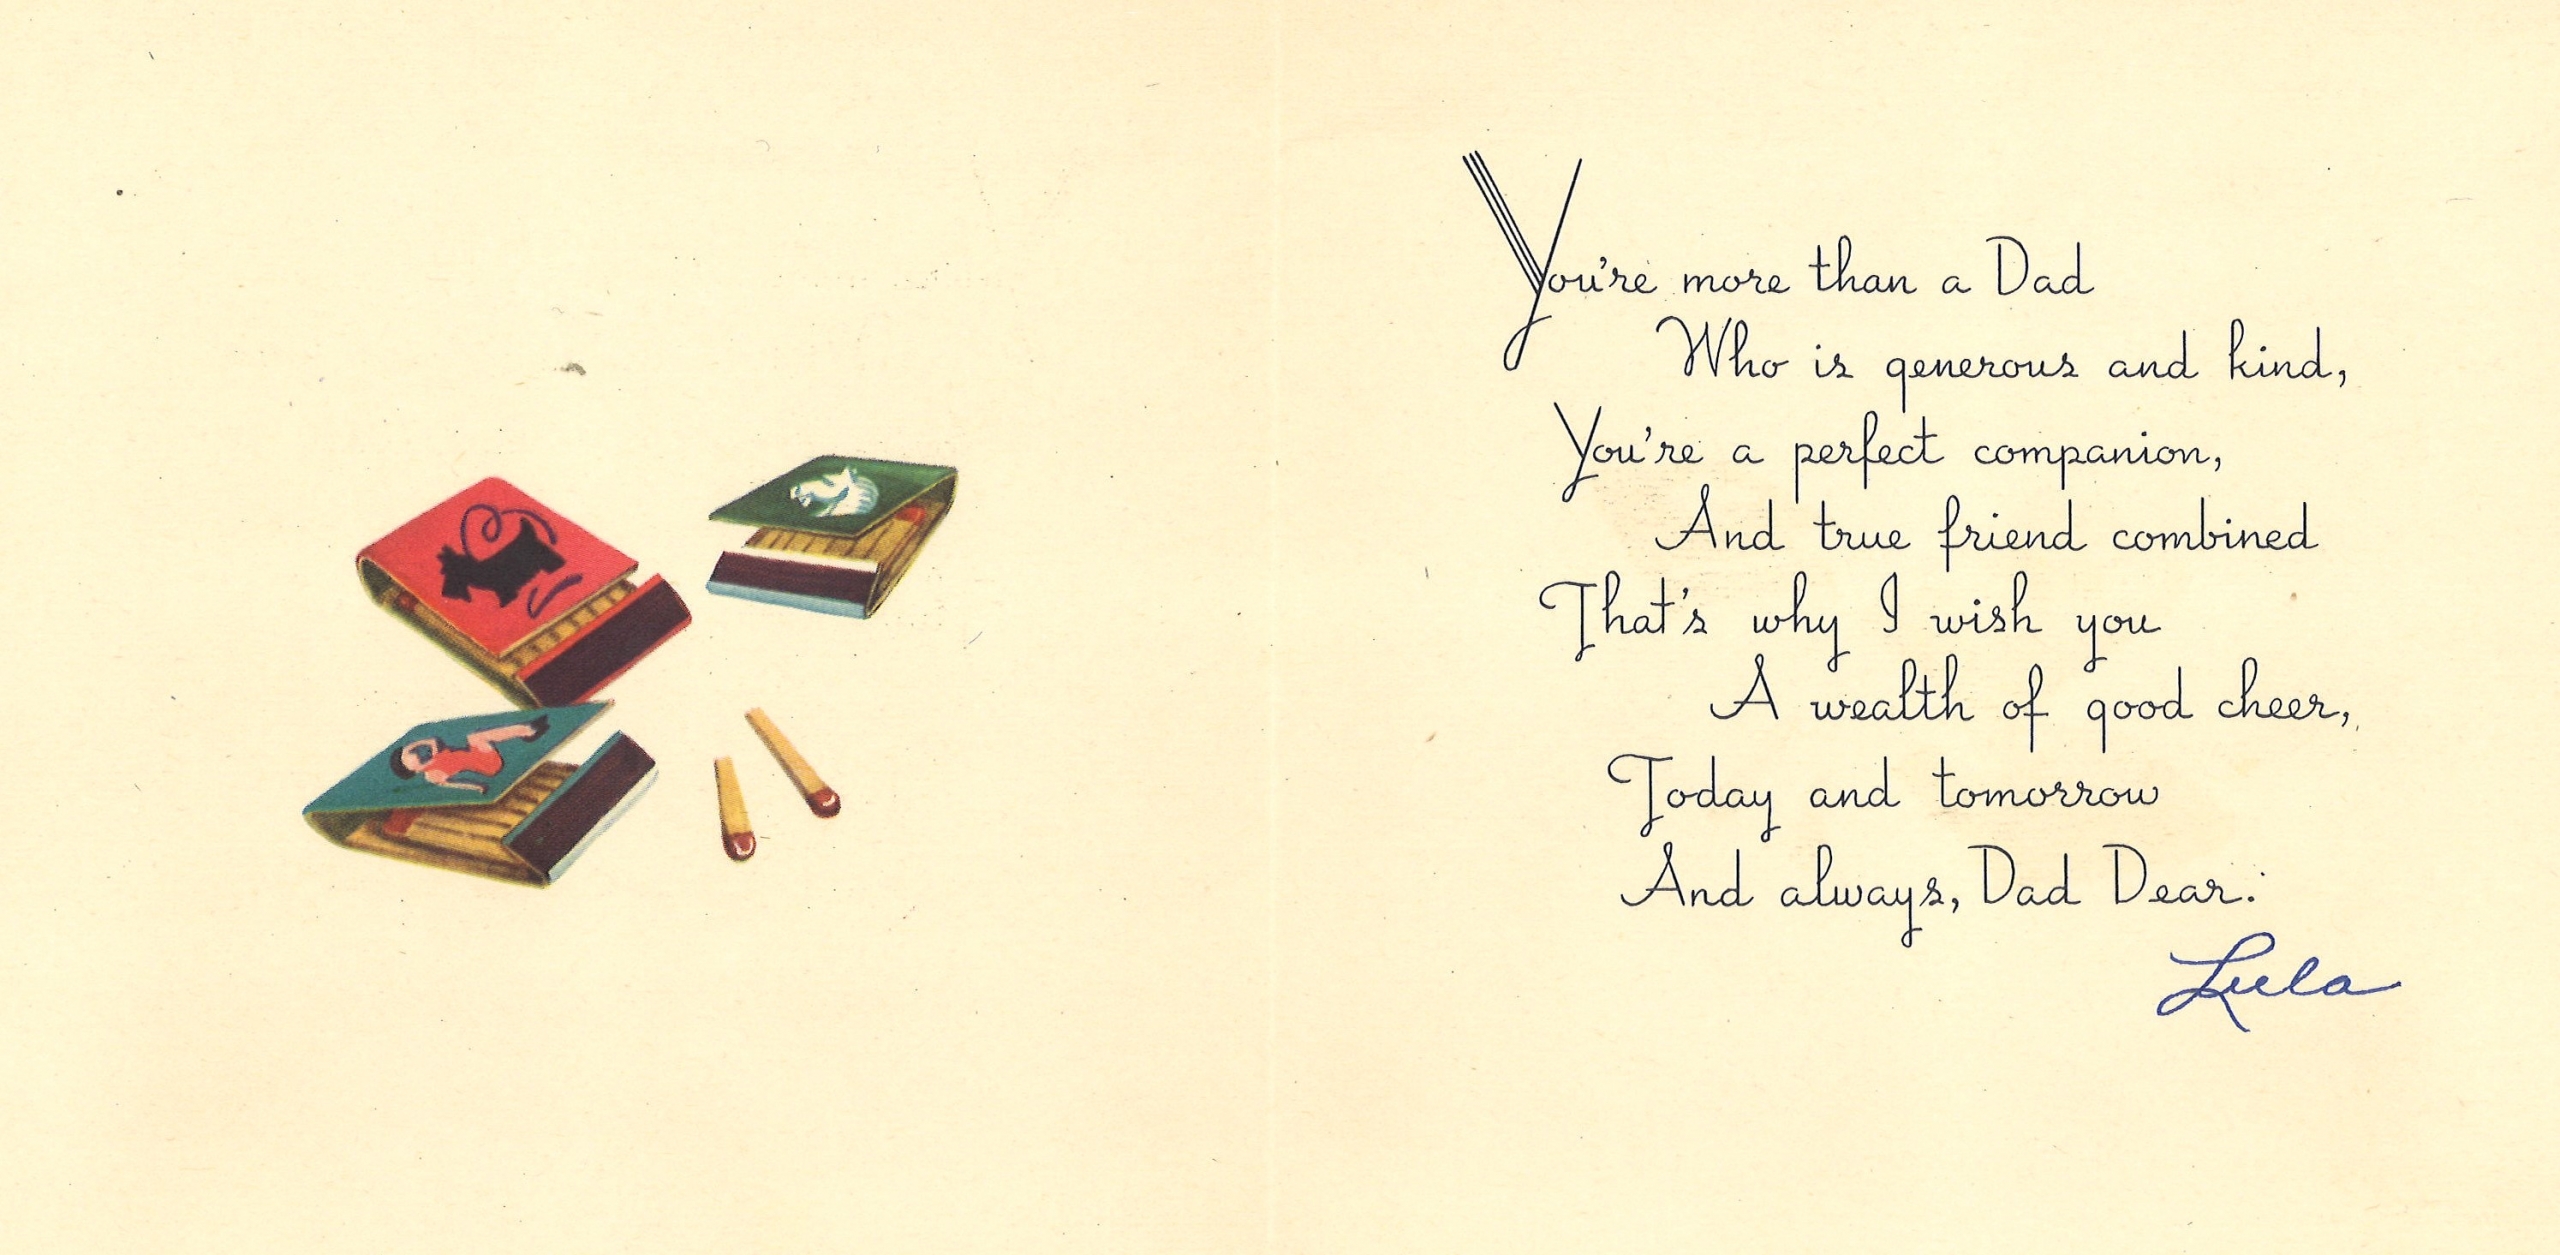 You're more than a Dad
Who is generous and kind,
You're a perfect companion,
And true friend combined
That's why I wish you
A wealth of good cheer,
Today and tomorrow
And always, Dad Dear.
Lula